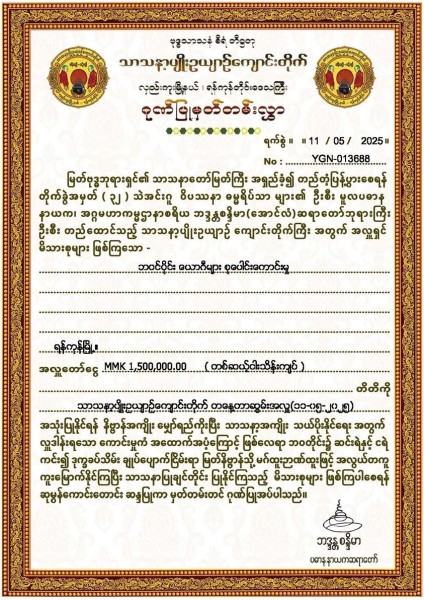 ဗုဒ္ဓသာသနံ စိရံ တိဋ္ဌတု
သာသနာ့ပျိုးဥယျာဉ်ကျောင်းတိုက်
လှည်းကူးမြို့နယ် ၊ ရန်ကုန်တိုင်းဒေသကြီး
ဂုဏ်ပြုမှတ်တမ်းလွှာ
ရက်စွဲ ။ ။ 11 / 05 / 2025။
No : YGN-013688
မြတ်ဗုဒ္ဓဘုရားရှင်၏ သာသနာတော်မြတ်ကြီး အရှည်ခံ၍ တည်တံ့ပြန့်ပွားစေရန်
တိုက်ခွဲအမှတ် ( ၃၂ ) သဲအင်းဂူ ဝိပဿနာ ဓမ္မရိပ်သာ များ၏ ဦးစီး မူလပဓာန
နာယက၊ အဂ္ဂမဟာကမ္မဋ္ဌာနာစရိယ ဘဒ္ဒန္တစန္ဒိမာ(အောင်လံ)ဆရာတော်ဘုရားကြီး
ဦးစီး တည်ထောင်သည့် သာသနာ့ပျိုးဥယျာဉ် ကျောင်းတိုက်ကြီး အတွက် အလှူရှင်
မိသားစုများ ဖြစ်ကြသော -
ဘဝင်ပိုင်း ယောဂီများ စုပေါင်းကောင်းမှု
ရန်ကုန်မြို့။
အလှူတော်ငွေ MMK 1,500,000.00 ( တစ်ဆယ့်ငါးသိန်းကျပ် )
တိတိကို
သာသနာ့ပျိုးဥယျာဉ်ကျောင်းတိုက် တနေ့တာဆွမ်းအလှူ(၁၁-၀၅-၂၀၂၅)
အသုံးပြုနိုင်ရန် နိဗ္ဗာန်အကျိုး မျှော်ရည်ကိုးပြီး သာသနာ့အကျိုး သယ်ပိုးနိုင်ရေး အတွက်
လှူဒါန်းရသော ကောင်းမှုကံ အထောက်အပံ့ကြောင့် ဖြစ်လေရာ ဘဝတိုင်း၌ ဆင်းရဲနှင့် ငရဲ
ကင်း၍ ဒုက္ခခပ်သိမ်း ချုပ်ပျောက်ငြိမ်းရာ မြတ်နိဗ္ဗာန်သို့ မဂ်ထူးဉာဏ်ထူးဖြင့် အလွယ်တကူ
ကူးမြောက်နိုင်ကြပြီး သာသနာပြုချင်တိုင်း ပြုနိုင်ကြသည့် မိသားစုများ ဖြစ်ကြပါစေရန်
ဆုမွန်ကောင်းတောင်း ဆန္ဒပြုကာ မှတ်တမ်းတင် ဂုဏ်ပြုအပ်ပါသည်။
ဘဒ္ဒန္တစန္ဒိမာ
ပဓာနနာယကဆရာတော်